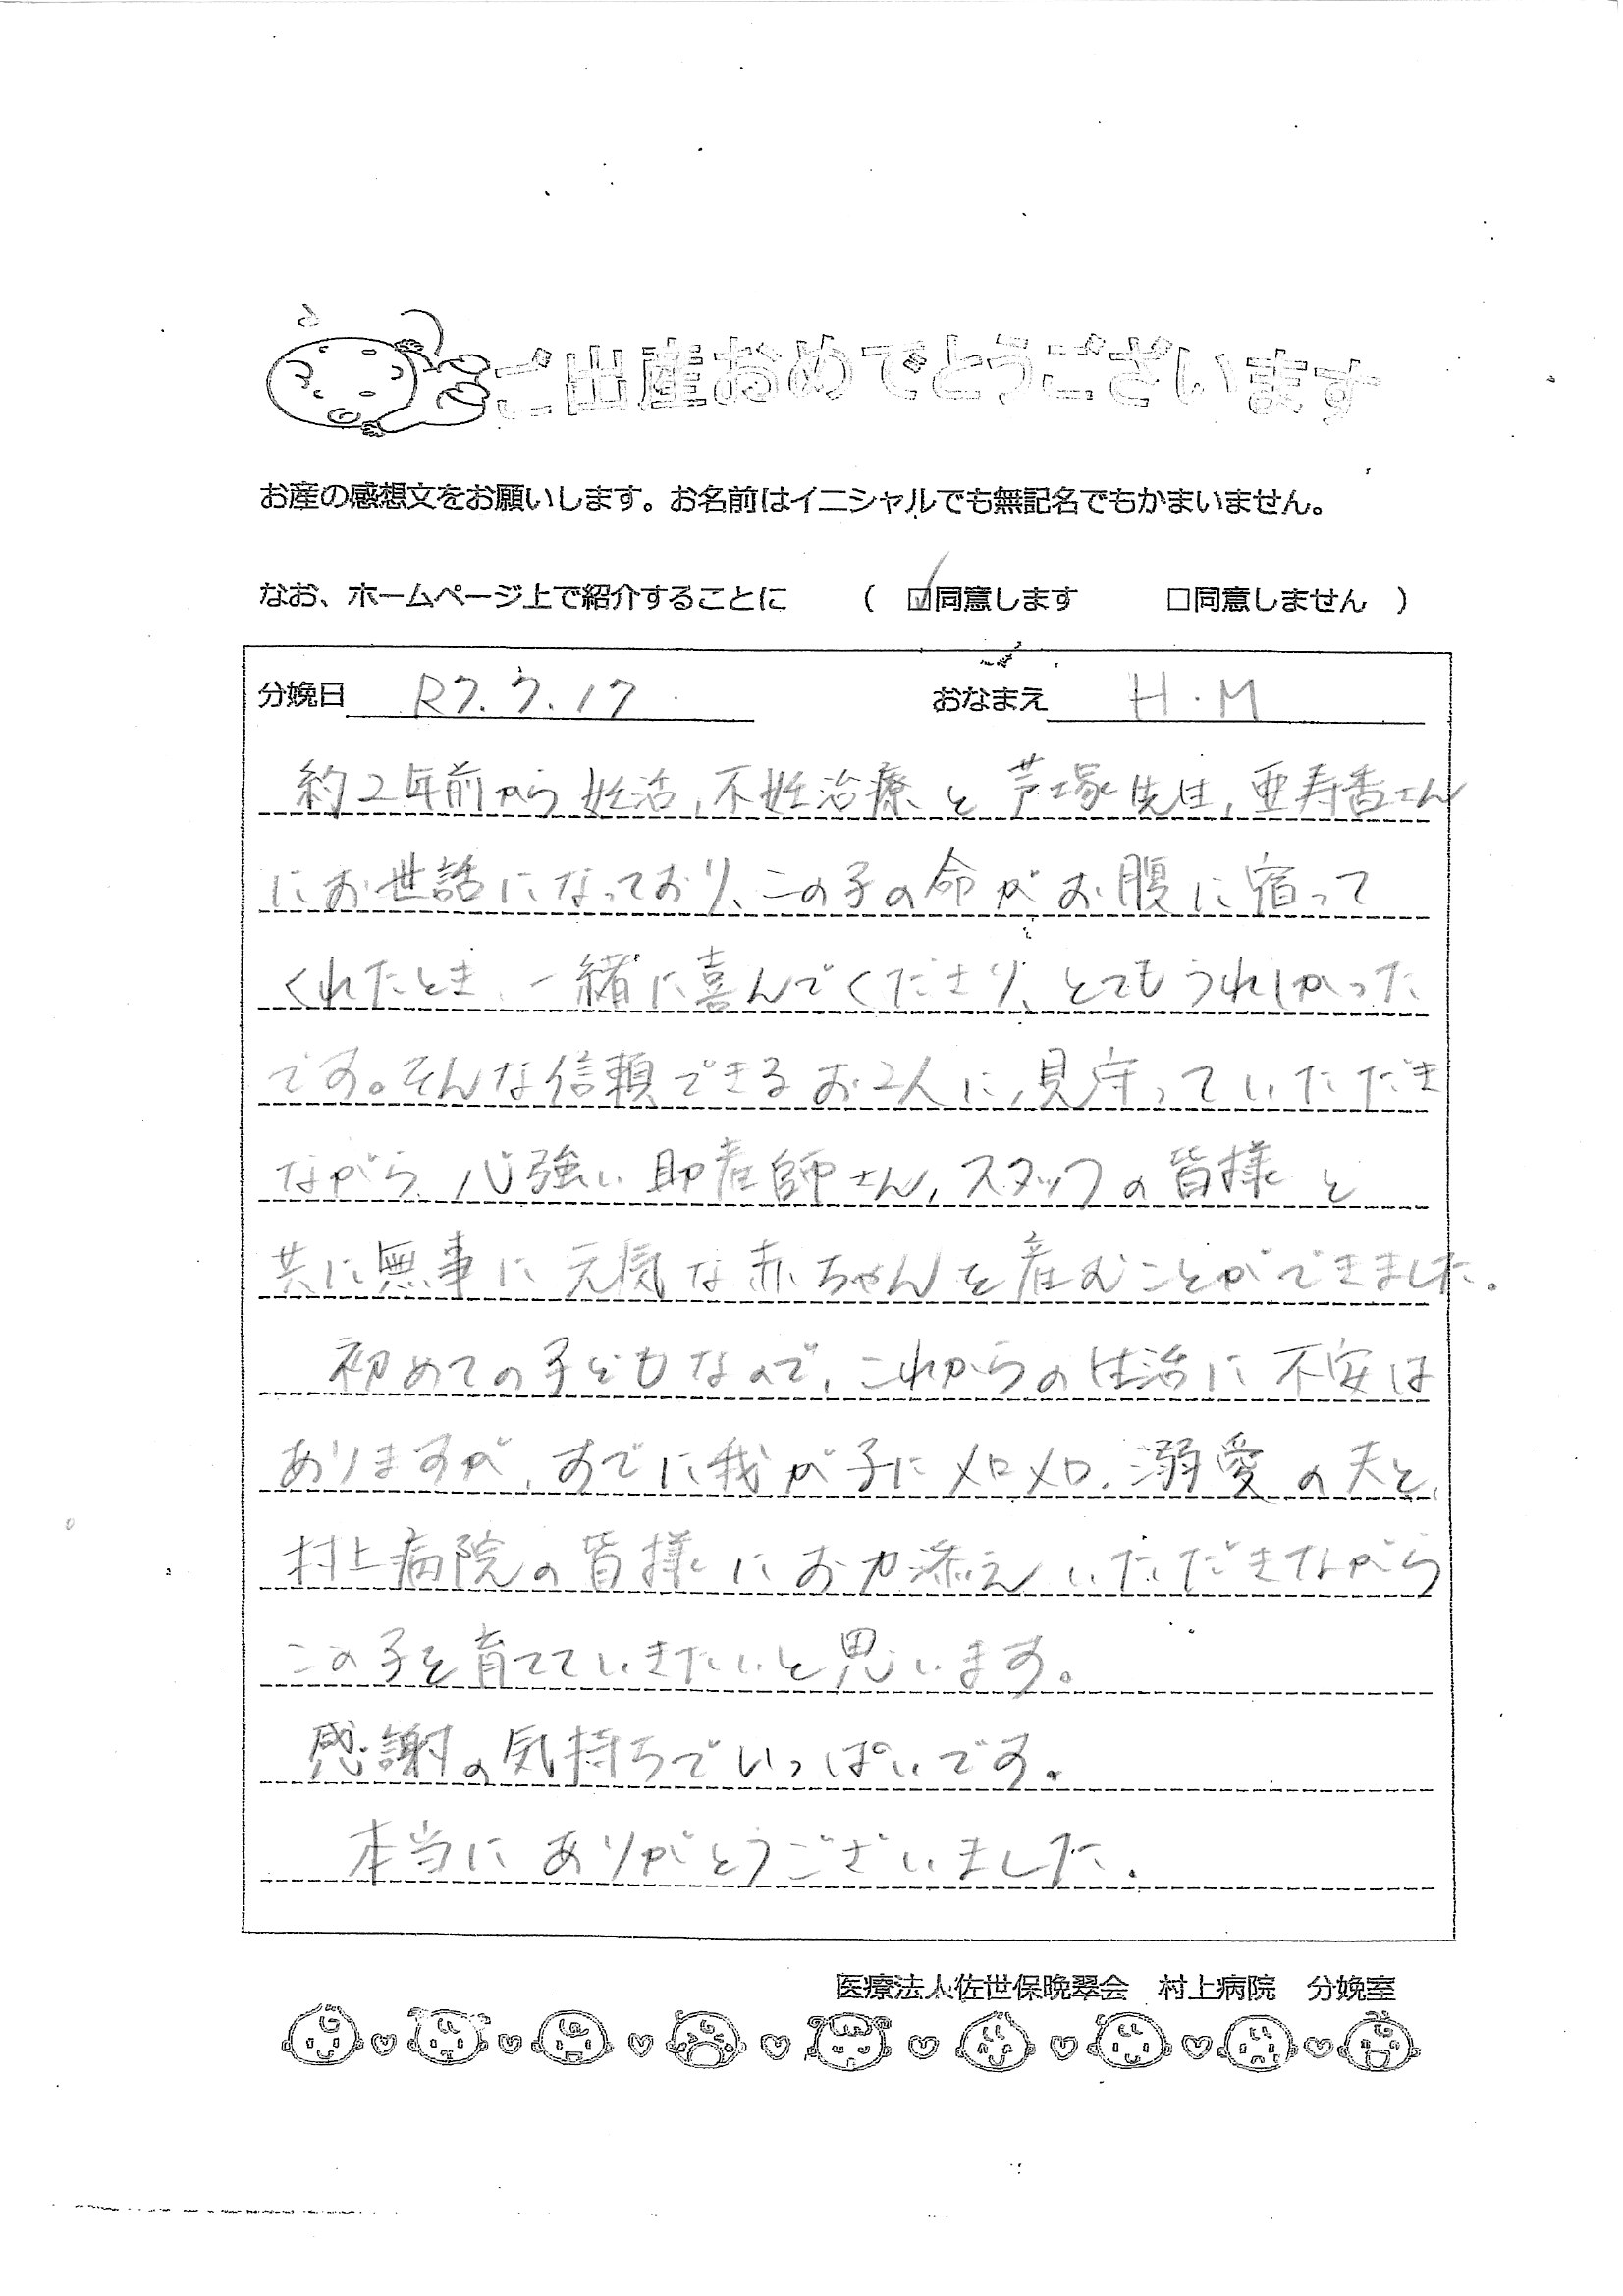 ご出産おめでとうございます
お産の感想文をお願いします。お名前はイニシャルでも無記名でもかまいません。
なお、ホームページ上で紹介することに （ ☑同意します □同意しません ）
分娩日 R7.7.17 おなまえ H.M
約2年前から妊活,不妊治療と芦塚先生,亜寿香さん
にお世話になっており、この子の命がお腹に宿って
くれたとき、一緒に喜んでくださり、とてもうれしかった
です。そんな信頼できるお2人に、見守っていただき
ながら、心強い助産師さん,スタッフの皆様と
共に無事に元気な赤ちゃんを産むことができました。
初めての子どもなので,これからの生活に不安は
ありますが,すでに我が子にメロメロ、溺愛の夫と、
村上病院の皆様にお力添えいただきながら
この子を育てていきたいと思います。
感謝の気持ちでいっぱいです。
本当にありがとうございました。
医療法人佐世保晩翠会 村上病院 分娩室